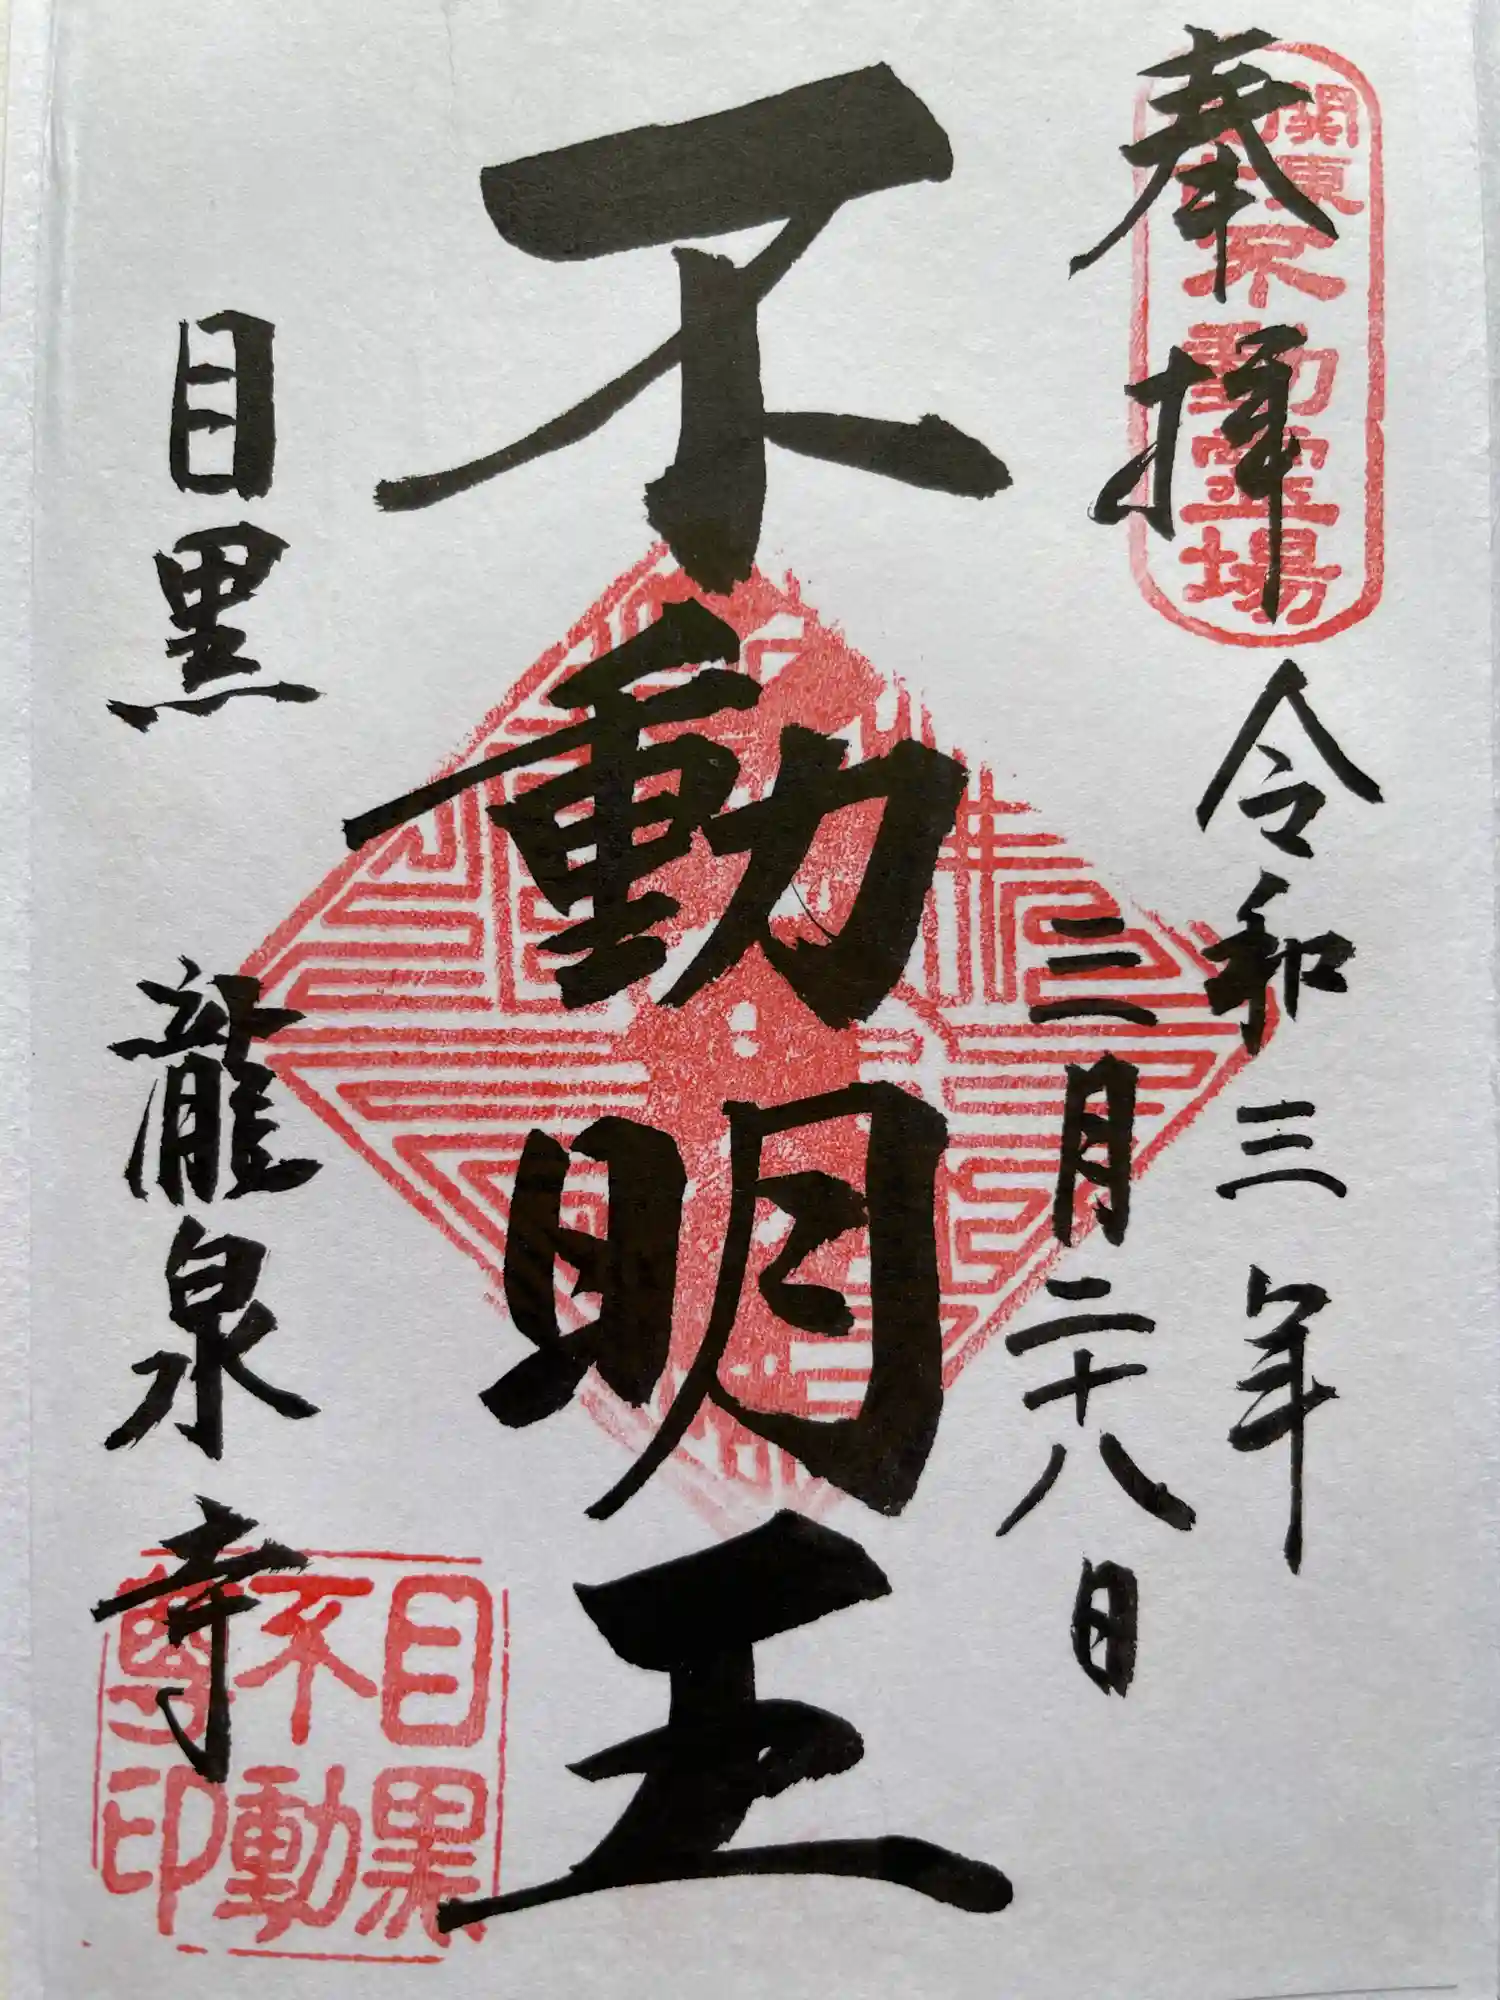 関東
不動霊場
奉拝
令和三年
三月二十八日
不動明王
目黒 龍泉寺
目黒
不動
尊印